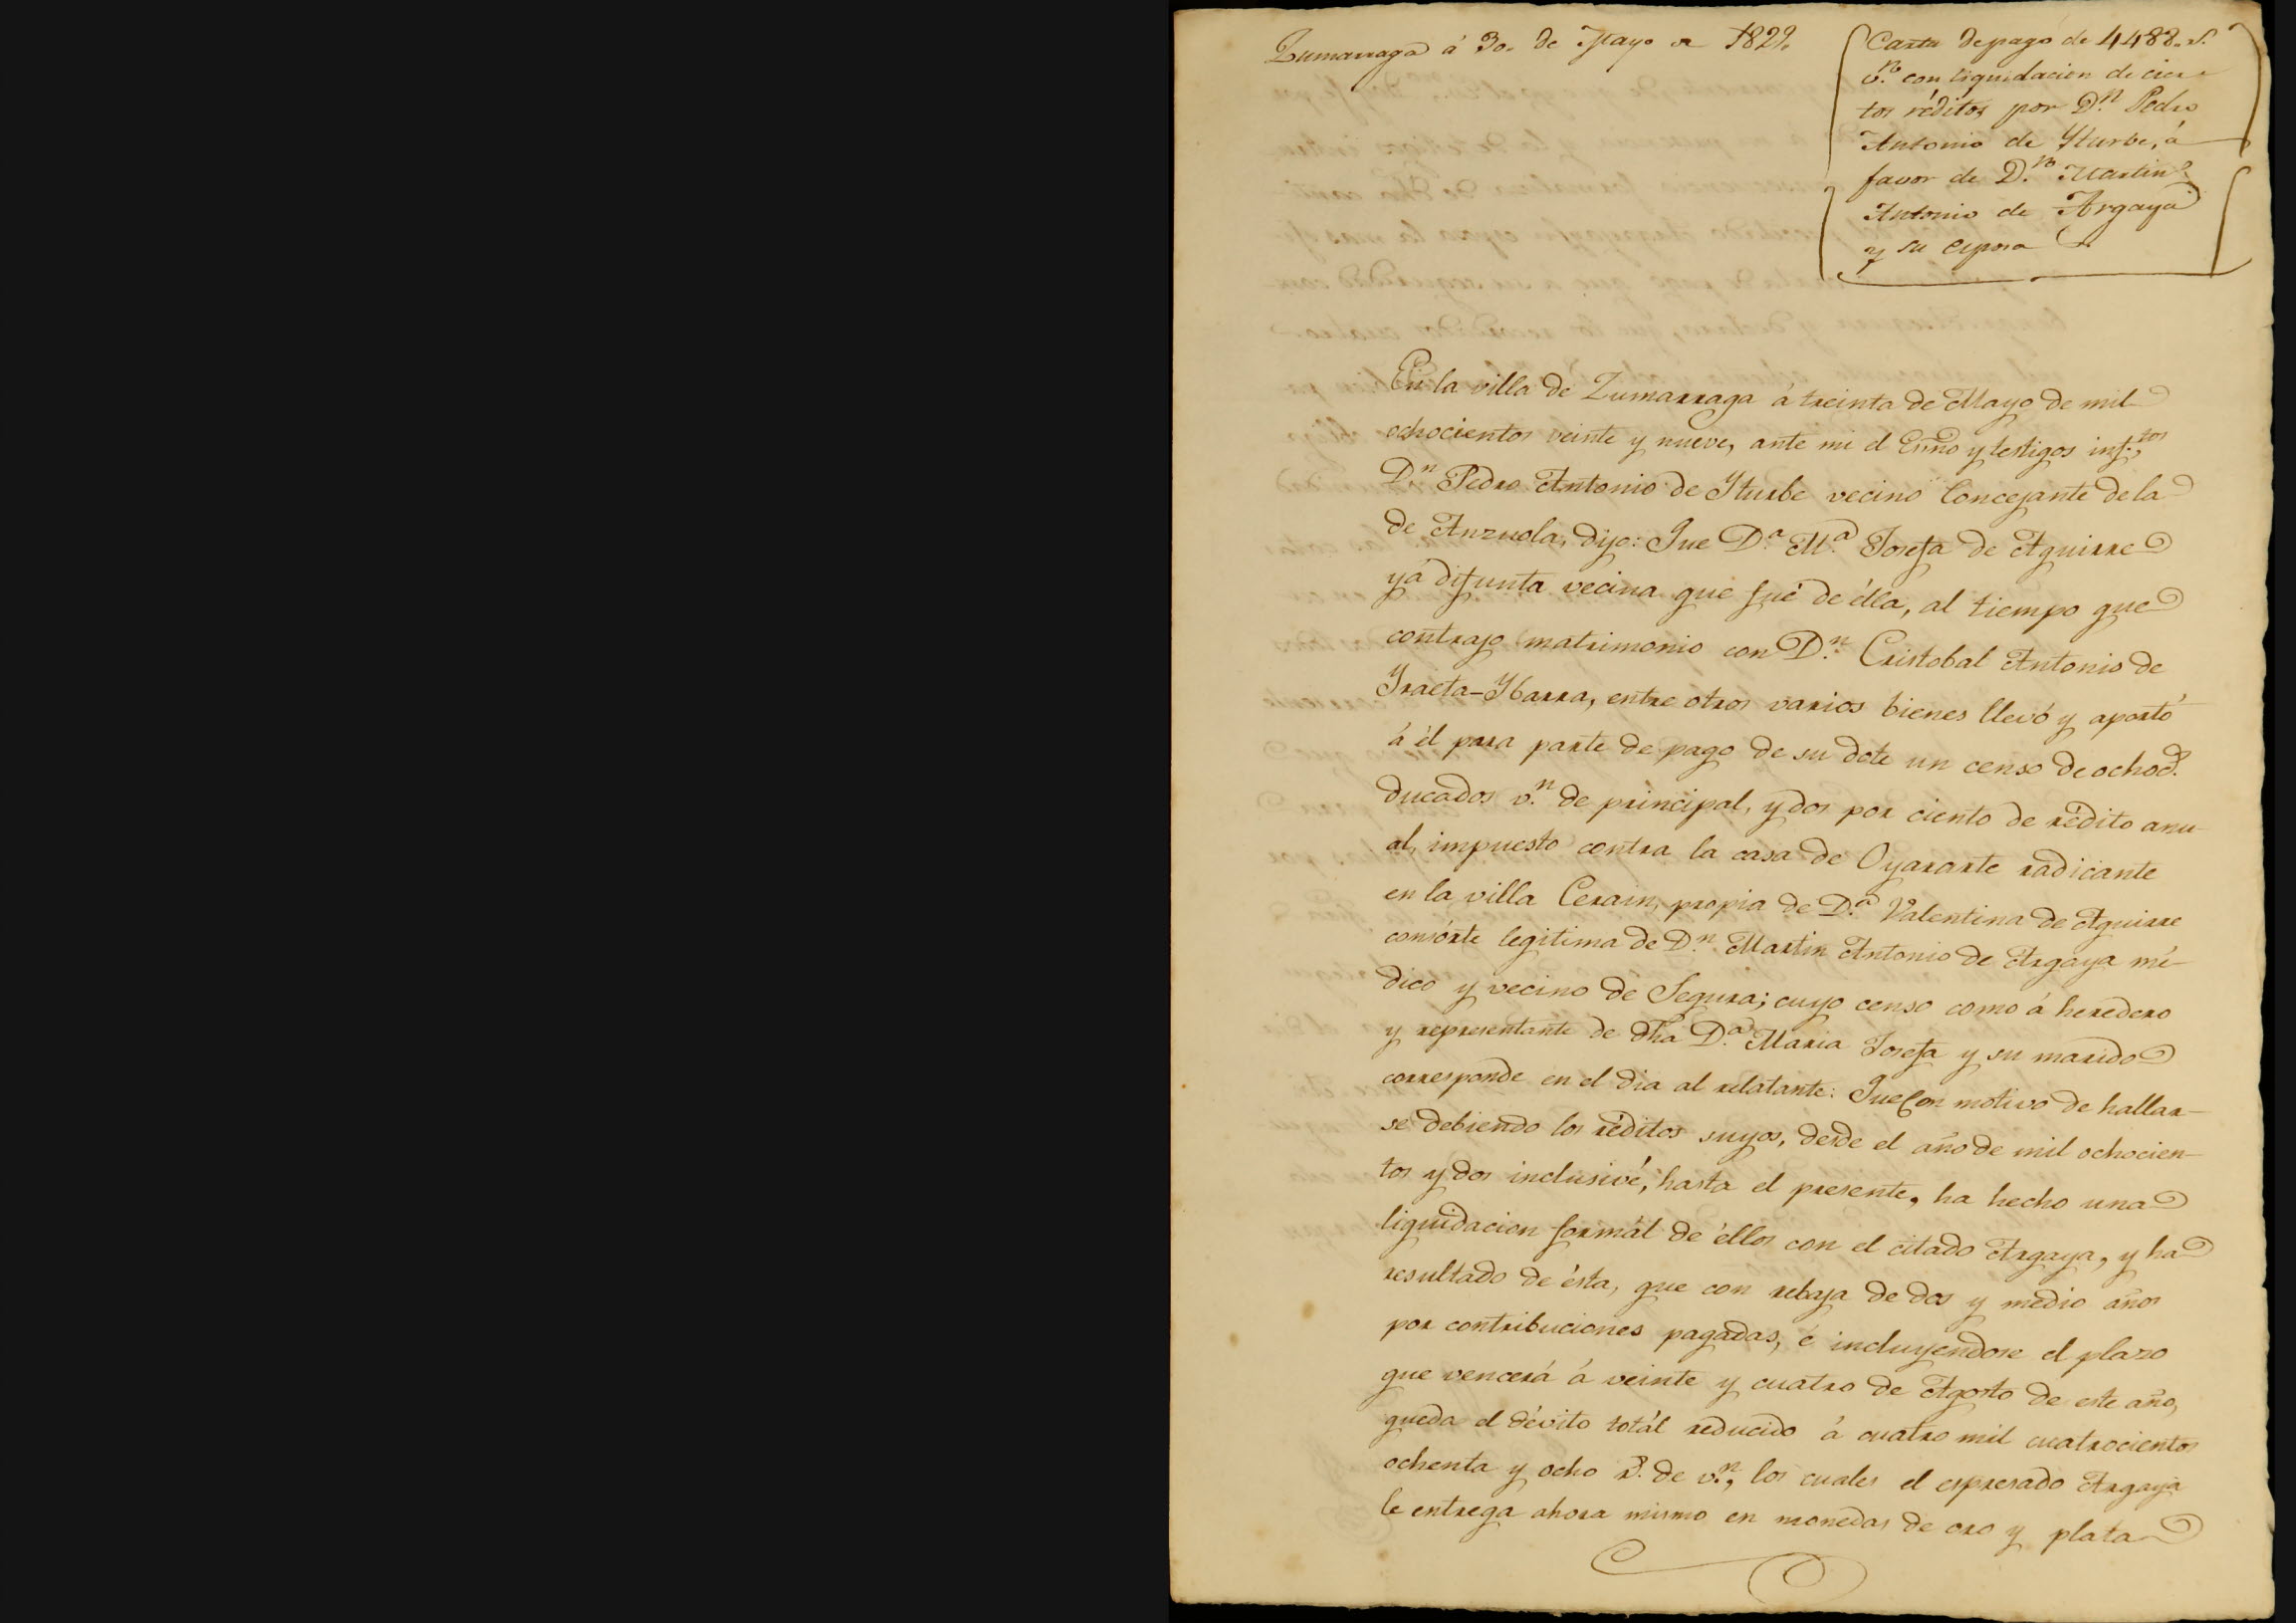 Zumarraga á 30. de Mayo de 1829.
Carta de pago de 4488. r.^s
v.^n con liquidacion de cier-
tos réditos por D.^n Pedro
Antonio de Yturbe, á
favor de D.^n Martin
Antonio de Argaya
y su esposa
En la villa de Zumarraga á treinta de Mayo de mil
ochocientos veinte y nueve, ante mi el Esño y testigos inf.^tos
D.^n Pedro Antonio de Yturbe vecino Concejante de la
de Anzuola, dijo: Que D.^a M.^a Josefa de Aguirre
yá difunta vecina que fué de élla, al tiempo que
contrajo matrimonio con D.^n Cristobal Antonio de
Yraeta-Ybarra, entre otros varios bienes llevó y aportó
á él para parte de pago de su dote un censo de ochoc.^s
ducados v.^n de principal, y dos por ciento de rédito anu-
al, impuesto contra la casa de Oyararte radicante
en la villa Cerain, propia de D.^a Valentina de Aguirre
consórte legitima de D.^n Martin Antonio de Argaya mé-
dico y vecino de Segura; cuyo censo como á heredero
y representante de dha D.^a Maria Josefa y su marido
corresponde en el dia al relatante: Que con motivo de hallar-
se debiendo los réditos suyos, desde el año de mil ochocien-
tos y dos inclusivé, hasta el presente, ha hecho una
liquidacion formál de éllos con el citado Argaya, y ha
resultado de ésta, que con rebaja de dos y medio años
por contribuciones pagadas, é incluyendose el plazo
que vencerá á veinte y cuatro de Agosto de este año,
queda el dévito totál reducido á cuatro mil cuatrocientos
ochenta y ocho r.^s de v.^n, los cuales el espresado Argaya
le entrega ahora mismo en monedas de oro y plata